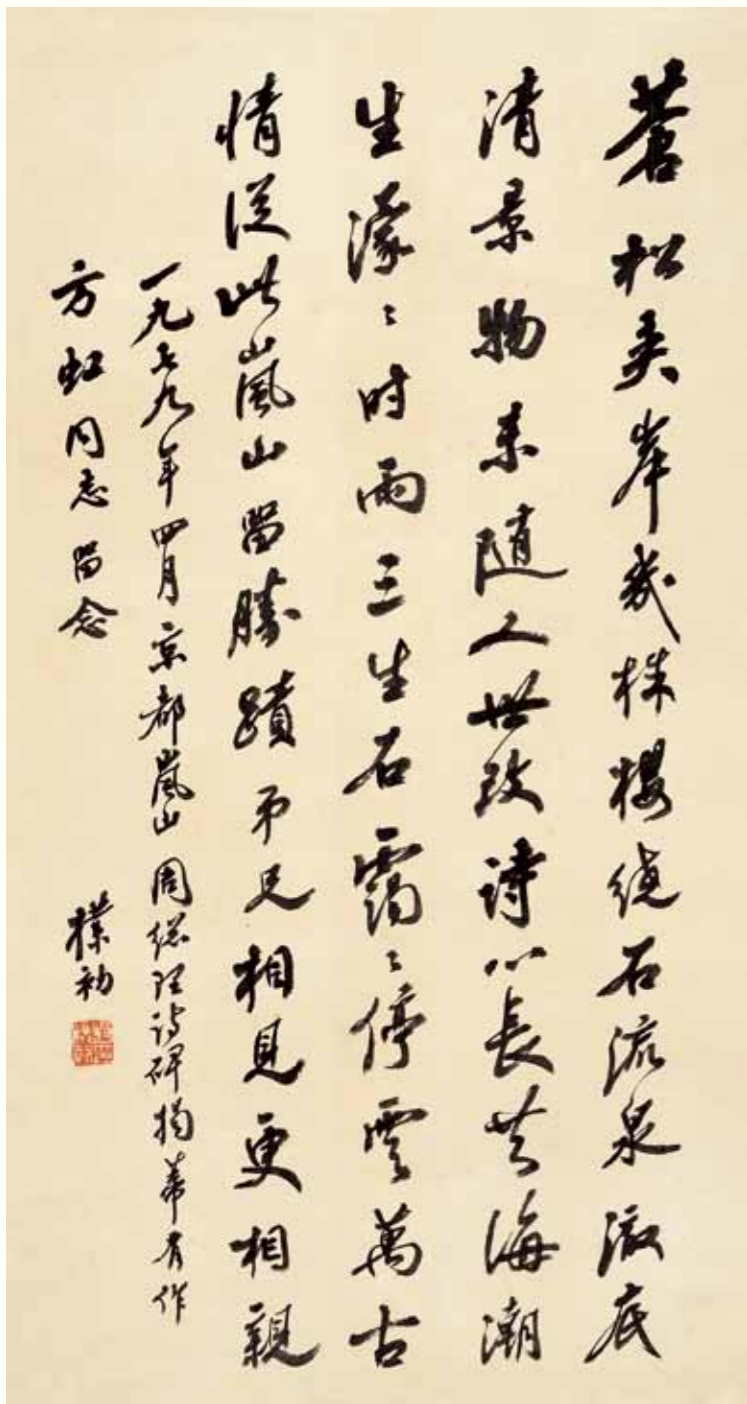 蒼松夹岸幾株櫻绕石流泉澈底
清景物未随人世改詩心長共海潮
生濛〻时雨三生石靄〻停雲萬古
情從此嵐山留勝蹟弟兄相見更相親
一九七九年四月京都嵐山周總理诗碑揭幕有作
方虹同志留念
樸初